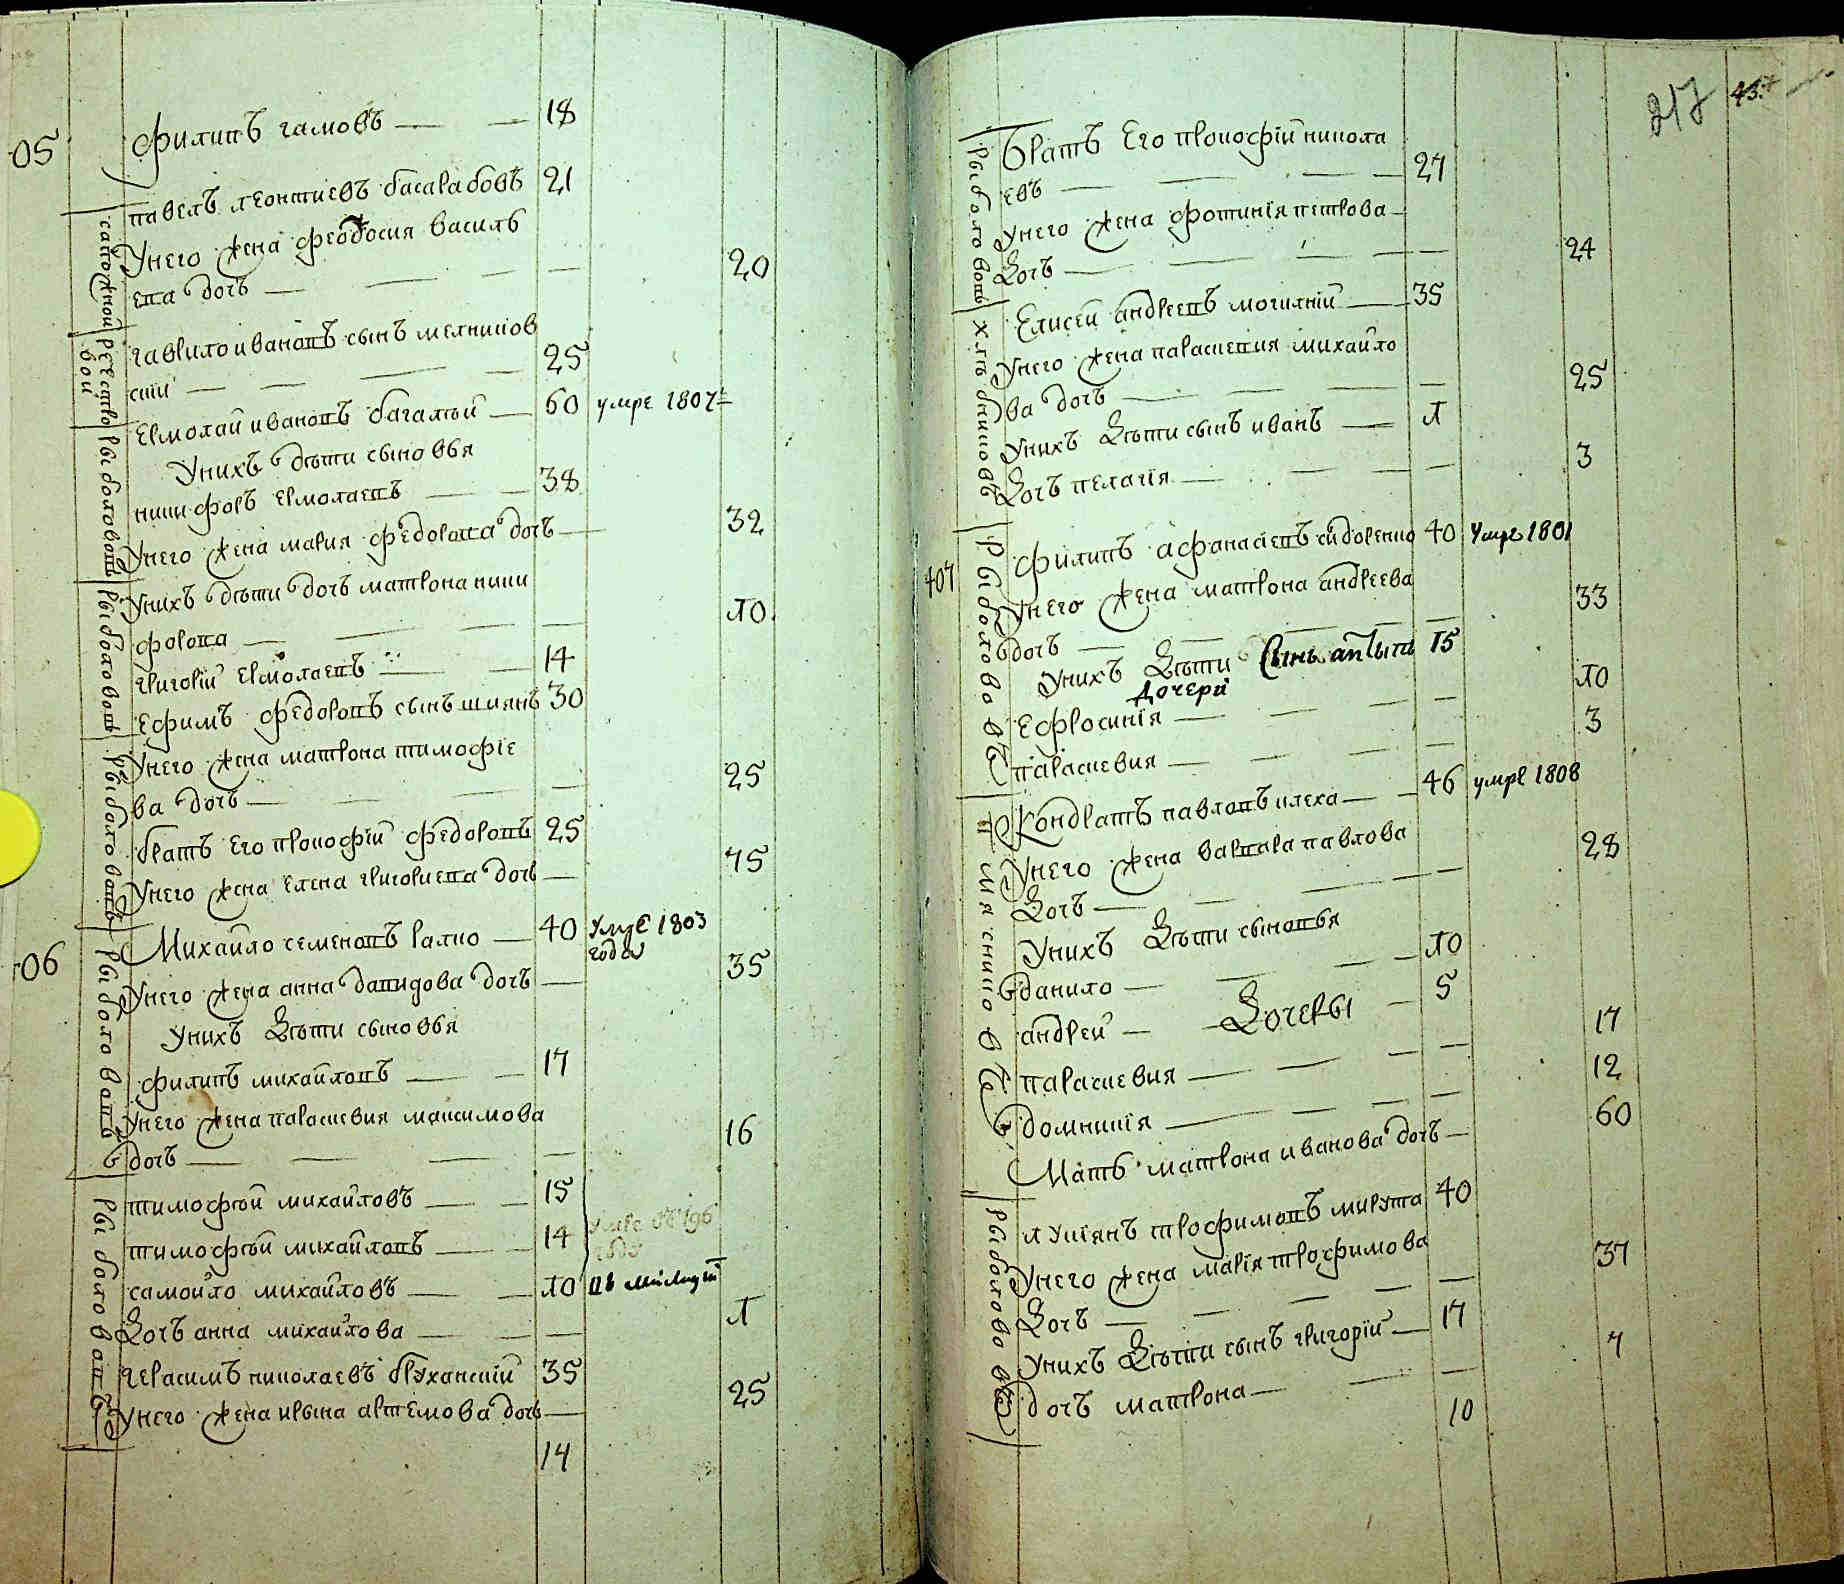 05
филипъ гамовъ — — 18
павелъ леонтиевъ басарабовъ 21
унего жена феодосия василь
ева дочь — — — — 20
гаврило ивановъ сынъ мелников
ский — — — — 25
ермолай ивановъ багатый — 60 умре 1807
унихъ дѣти сыновья
никифоръ ермолаевъ — — 38
унего жена мария федорова дочь — 32
унихъ дѣти дочь матрона ники
форова — — — — 10
григорий ермолаевъ — — 14
ефимъ федоровъ сынъ шиянъ 30
унего жена матрона тимофіе
ва дочь — — — — 25
братъ его прокофій федоровъ 25
унего жена елена григориева дочь — 45
06
Михайло семеновъ — 40 умре 1803
года
унего жена анна давидова дочь — 35
унихъ дѣти сыновья
филипъ михайловъ — — 17
унего жена параскевия максимова
дочь — — — — 16
тимофѣй михайловъ — — 15
тимофѣй михайловъ — — 14 умре
самойло михайловъ — — 10
дочь анна михайлова — — — 1
герасимъ николаевъ бруханский 35
унего жена ирына артемова дочь — 25
14
сапожной
рыболовъ
рыболовъ
рыболовъ
рыболовъ
рыболовъ
217 437
братъ его прокофій никола
евъ — — — — 27
унего жена фотинія петрова
дочь — — — — — 24
Елисей андреевъ могилній — 35
унего жена параскевия михайло
ва дочь — — — — 25
унихъ дѣти сынъ иванъ — 1
дочь пелагія — — — 3
407
филипъ афанасіевъ сидоренко 40 умре 1801
унего жена матрона андреева
дочь — — — — 33
унихъ дѣти сынъ 15
дочери
ефросинія — — — — 10
параскевия — — — — 3
Кондратъ павловъ клеха — — 46 умре 1808
унего жена варвара павлова
дочь — — — — 28
унихъ дѣти сыновья
данило — — — — 10
андрей — — 5
дочеры
параскевия — — — — 17
домникія — — — — 12
Мать матрона иванова дочь — 60
лукіянъ трофимовъ мирута 40
унего жена марія трофимова
дочь — — — — 37
унихъ дѣти сынъ григорій — 17
дочь матрона — — — 7
10
рыболовъ
хлѣбниковъ
рыболововъ
мясниковъ
рыболововъ